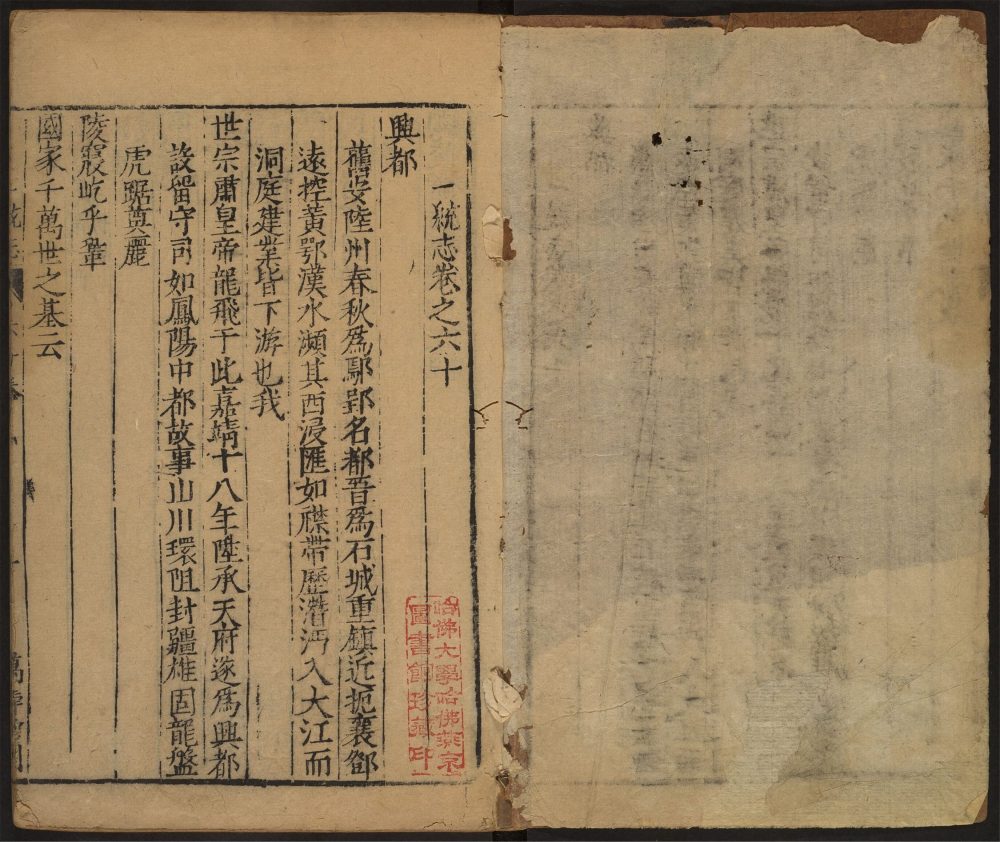 一統志卷之六十
興都
舊安陸州春秋爲鄖郢名都晉爲石城重鎮近扼襄鄧
遠控黃鄂漢水瀕其西浸匯如襟帶歷潛沔入大江而
洞庭建業皆下游也我
世宗肅皇帝龍飛于此嘉靖十八年陞承天府遂爲興都
設留守司如鳳陽中都故事山川環阻封疆雄固龍盤
虎踞奠麗
陵寢屹乎鞏
國家千萬世之基云
哈佛大學哈佛燕京
圖書館珍藏印